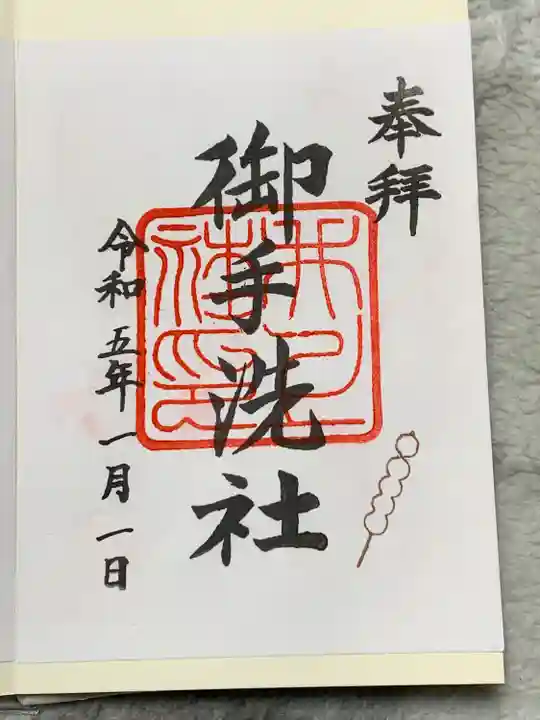 奉拝
御手洗社
令和五年一月一日